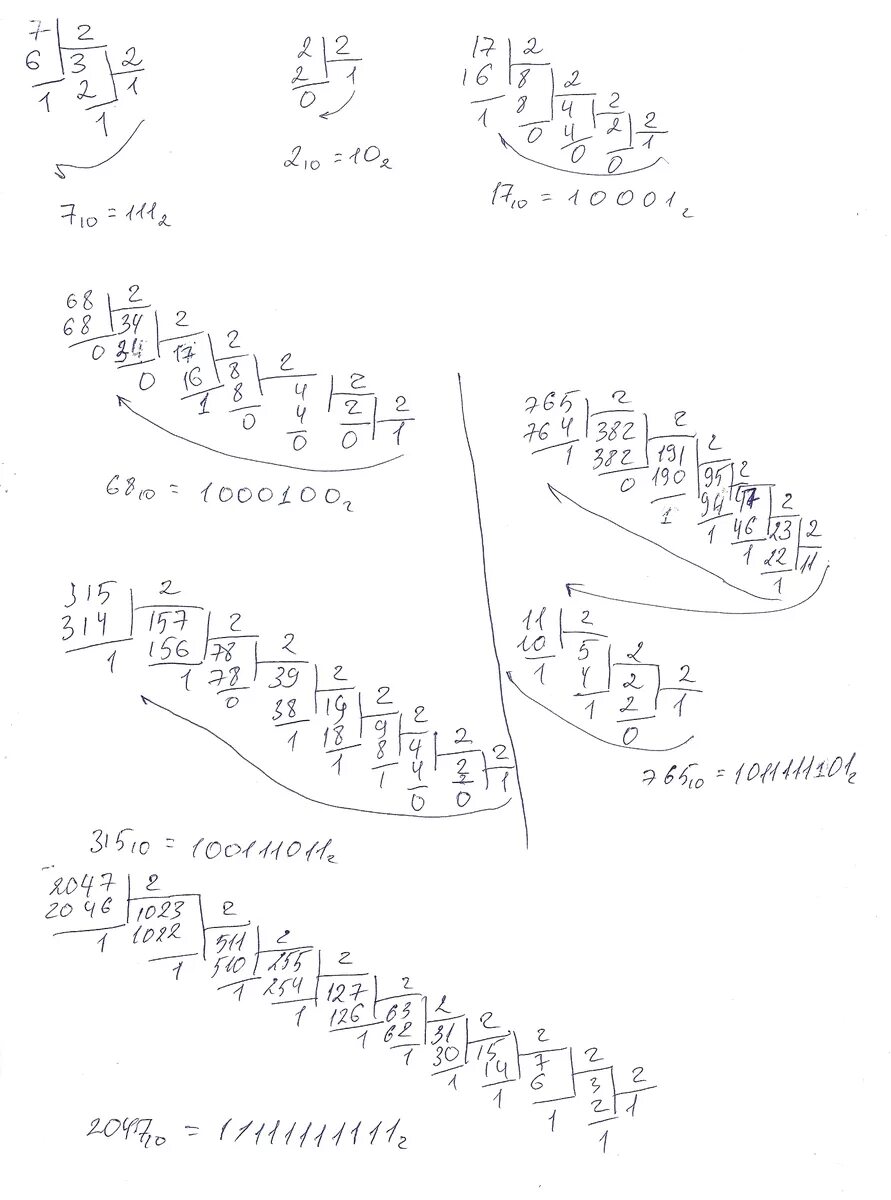 7 2
6 3 2
1 2 1
1
7₁₀ = 111₂
2 2
2 1
0
2₁₀ = 10₂
17 2
16 8 2
1 8 4 2
0 4 2 2
0 2 1
0
17₁₀ = 10001₂
68 2
68 34 2
0 34 17 2
0 16 8 2
1 8 4 2
0 4 2 2
0 2 1
0
68₁₀ = 1000100₂
765 2
764 382 2
1 382 191 2
0 190 95 2
1 94 47 2
1 46 23 2
1 22 11
1
11 2
10 5 2
1 4 2 2
1 2 1
0
765₁₀ = 1011111101₂
315 2
314 157 2
1 156 78 2
1 78 39 2
0 38 19 2
1 18 9 2
1 8 4 2
1 4 2 2
0 2 1
0
315₁₀ = 100111011₂
2047 2
2046 1023 2
1 1022 511 2
1 510 255 2
1 254 127 2
1 126 63 2
1 62 31 2
1 30 15 2
1 14 7 2
1 6 3 2
1 2 1
1
2047₁₀ = 11111111111₂